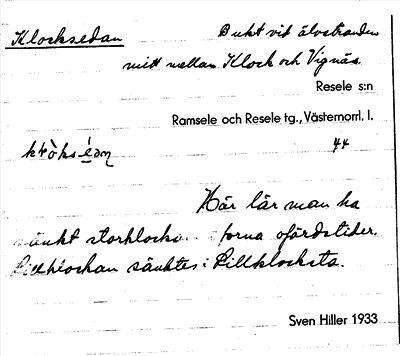 Klocksedan
Bukt vid älvstranden
mitt mellan Klock och Vignäs.
Resele s:n
Ramsele och Resele tg., Västernorrl. l.
44
Här lär man ha
sänkt storklocka i forna ofärdstider.
Lillklockan sänktes i Lillklocksta.
Sven Hiller 1933